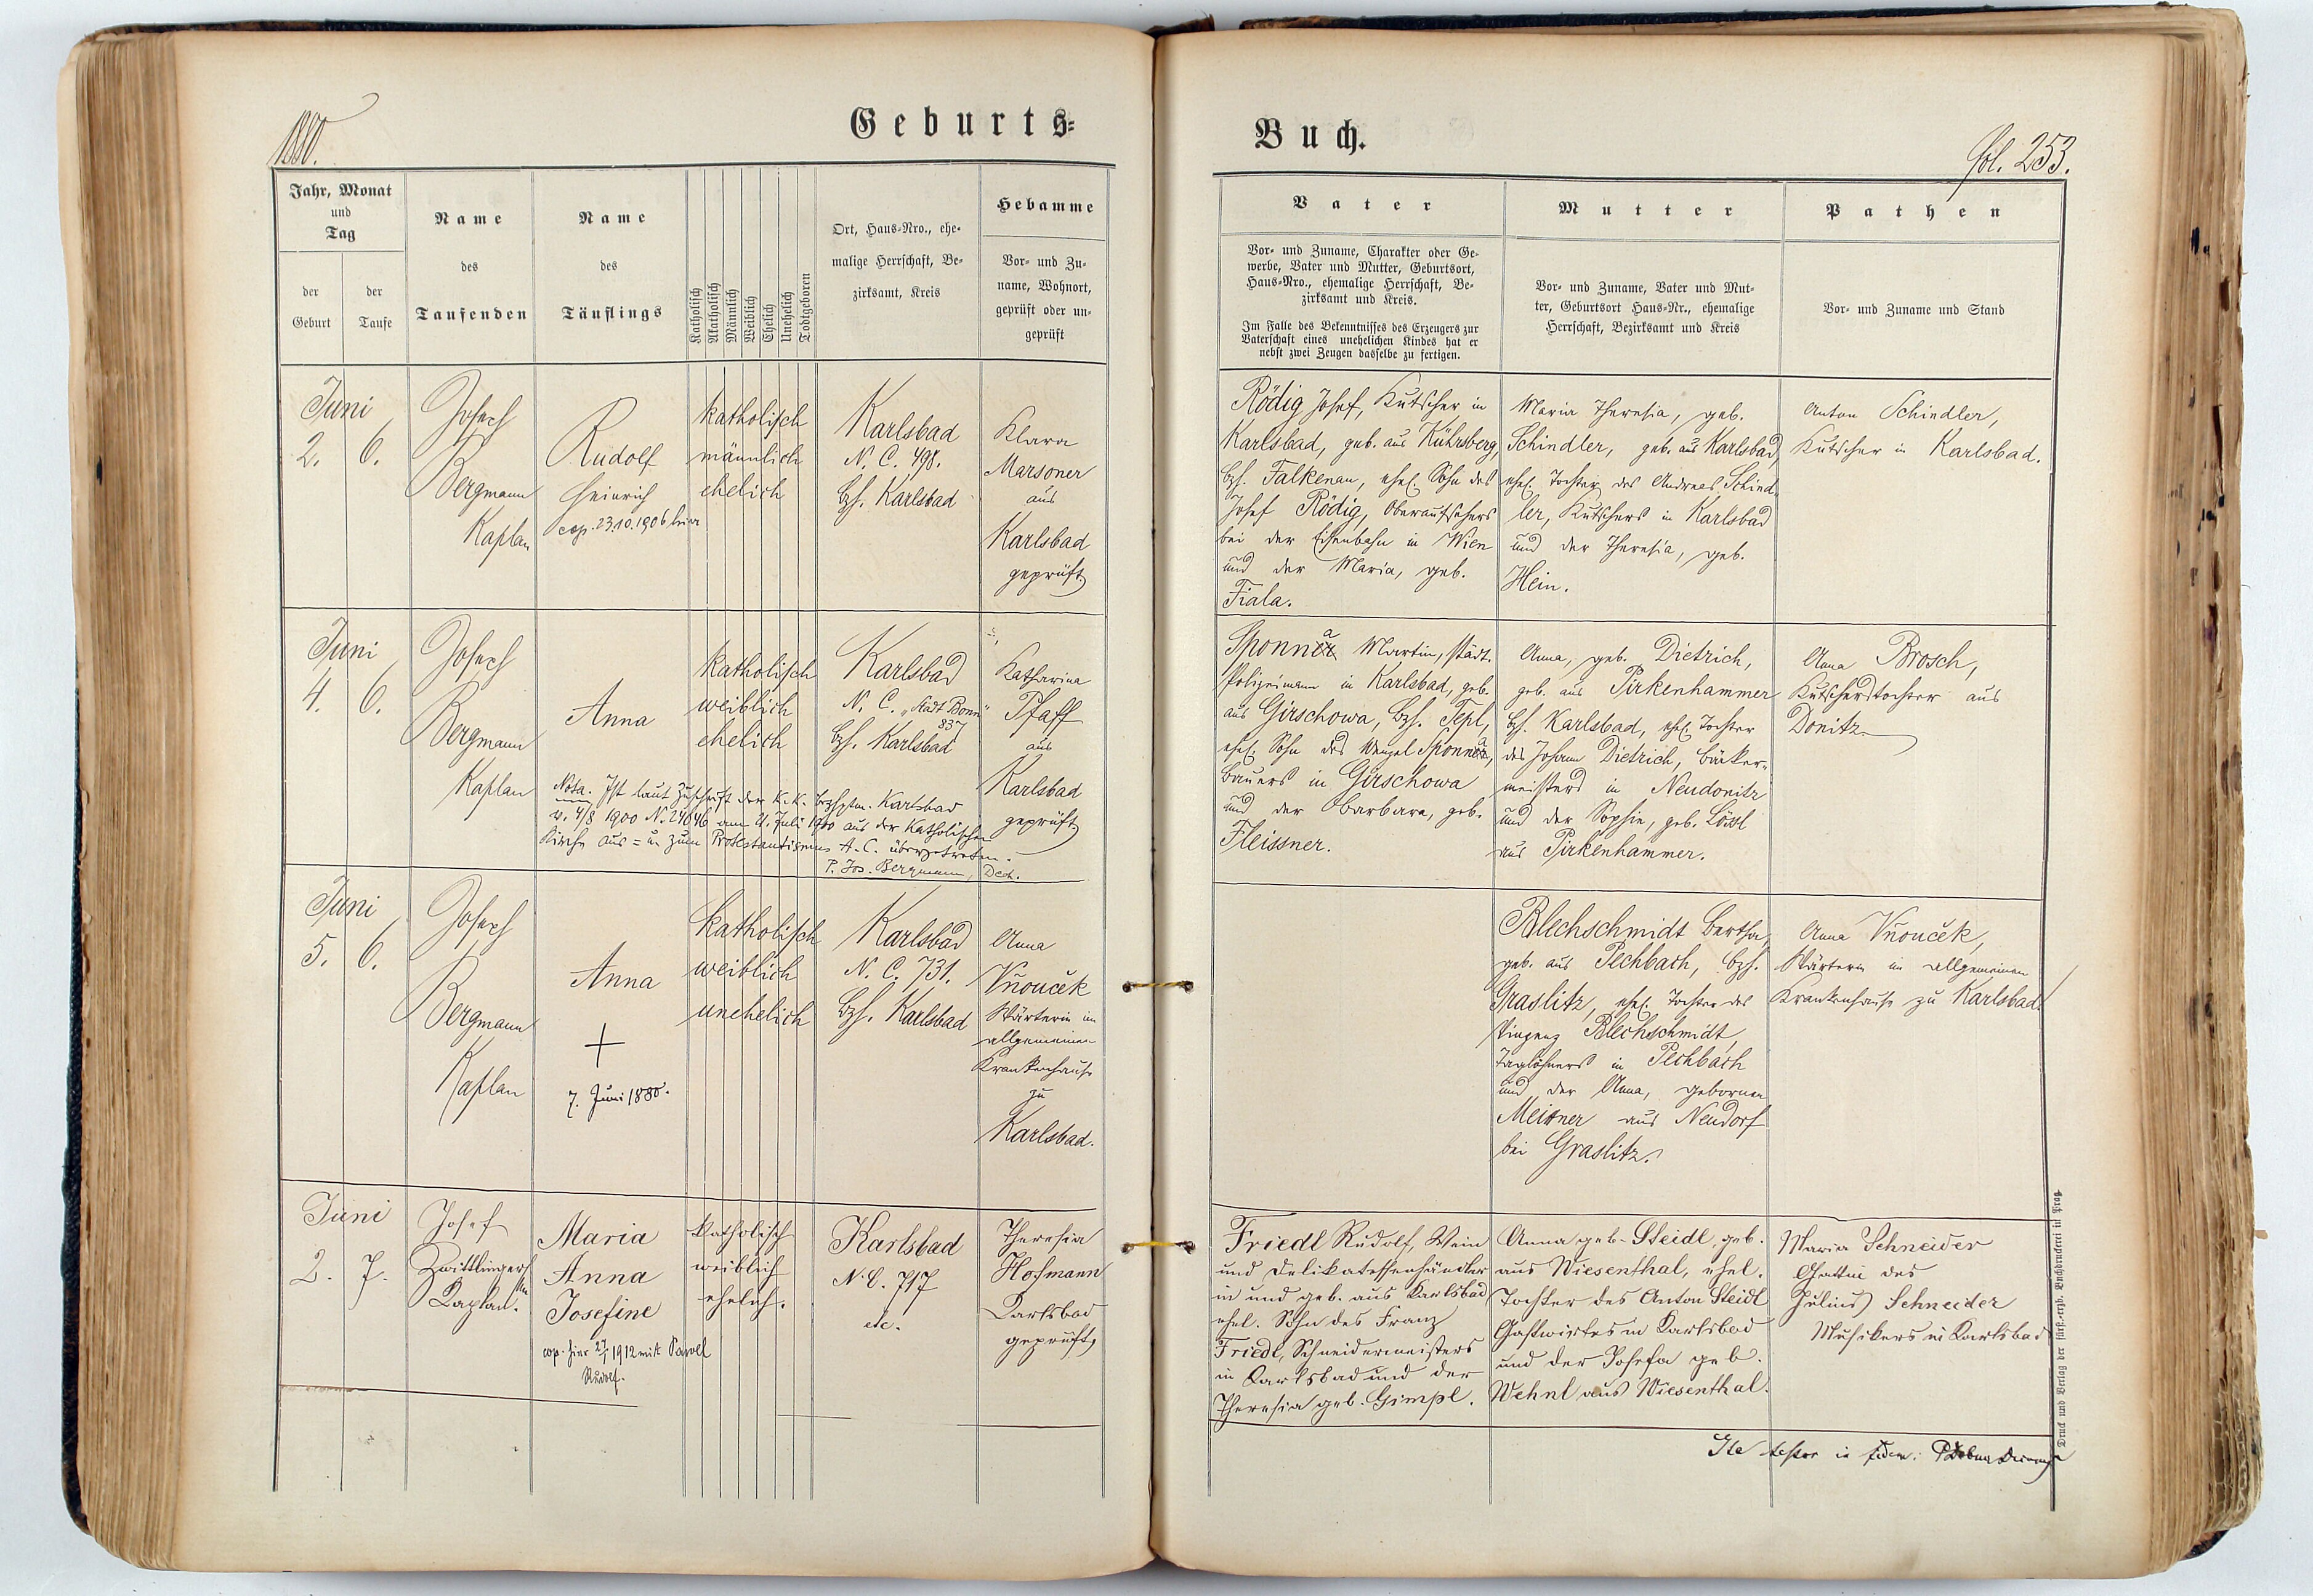 1880.
Geburts=
Jahr, Monat
und
Tag
der
Geburt
der
Taufe
Name
des
Taufenden
Name
des
Täuflings
Katholisch
Akatholisch
Männlich
Weiblich
Ehelich
Unehelich
Todtgeboren
Ort, Haus=Nro., ehe=
malige Herrschaft, Be=
zirksamt, Kreis
Hebamme
Vor= und Zu=
name, Wohnort,
geprüft oder un=
geprüft
Juni
2. 6.
Joseph
Bergmann
Kaplan
Rudolf
Heinrich
cop. 23.10.1906 hier
katholisch
männlich
ehelich
Karlsbad
N. C. 498.
Bzh. Karlsbad
Klara
Marsoner
aus
Karlsbad
geprüft
Juni
4. 6.
Joseph
Bergmann
Kaplan
Anna
katholisch
weiblich
ehelich
Karlsbad
N. C. „Stadt Bonn"
837
Bzh. Karlsbad
Katharina
Pfaff
aus
Karlsbad
geprüft
Nota. Ist laut Zuschrift der k.k. Bezhptm. Karlsbad
v. 4/8 1900 N. 24646 am 21. Juli 1900 aus der katholischen
Kirche aus= u. zum Protestantismus A. C. übergetreten.
P. Jos. Bergmann, Dech.
Juni
5. 6.
Joseph
Bergmann
Kaplan
Anna
+
7. Juni 1880.
katholisch
weiblich
unehelich
Karlsbad
N. C. 731.
Bzh. Karlsbad
Anna
Vňouček
Wärterin im
allgemeinen
Krankenhause
zu
Karlsbad.
Juni
2. 7.
Josef
Zwittlinger
Kaplan.
Maria
Anna
Josefine
cop. hier 1912 mit Pawel
Rudolf.
katholisch
weiblich
ehelich.
Karlsbad
N. C. 717
etc.
Theresia
Hofmann
Karlsbad
geprüft
Buch.
fol. 253.
Vater
Vor= und Zuname, Charakter oder Ge=
werbe, Vater und Mutter, Geburtsort,
Haus=Nro., ehemalige Herrschaft, Be=
zirksamt und Kreis.
Im Falle des Bekenntnisses des Erzeugers zur
Vaterschaft eines unehelichen Kindes hat er
nebst zwei Zeugen dasselbe zu fertigen.
Mutter
Vor= und Zuname, Vater und Mut=
ter, Geburtsort Haus=Nr., ehemalige
Herrschaft, Bezirksamt und Kreis
Pathen
Vor= und Zuname und Stand
Rödig Josef, Kutscher in
Karlsbad, geb. aus Kührberg,
Bzh. Falkenau, ehel. Sohn des
Josef Rödig, Oberaufsehers
bei der Eisenbahn in Wien
und der Maria, geb.
Fiala.
Maria Theresia, geb.
Schindler, geb. aus Karlsbad,
ehel. Tochter des Andreas Schind=
ler, Kutschers in Karlsbad
und der Theresia, geb.
Hein.
Anton Schindler,
Kutscher in Karlsbad.
Sponnar Martin, städt.
Polizeimann in Karlsbad, geb.
aus Girschowa, Bzh. Tepl,
ehel. Sohn des Wenzel Sponnar,
Bauers in Girschowa
und der Barbara, geb.
Fleissner.
Anna, geb. Dietrich,
geb. aus Pirkenhammer
Bzh. Karlsbad, ehel. Tochter
des Johann Dietrich, Bäcker=
meisters in Neudonitz
und der Sophie, geb. Lössl
aus Pirkenhammer.
Anna Brosch,
Kutscherstochter aus
Donitz.
Blechschmidt Bertha,
geb. aus Pechbach, Bzh.
Graslitz, ehel. Tochter des
Vinzenz Blechschmidt,
Taglöhners in Pechbach
und der Anna, geborner
Meinner aus Neudorf
bei Graslitz.
Anna Vňouček,
Wärterin im allgemeinen
Krankenhause zu Karlsbad.
Friedl Rudolf, Wein
und Delikatessenhändler
in und geb. aus Karlsbad
ehel. Sohn des Franz
Friedl, Schneidermeisters
in Karlsbad und der
Theresia geb. Gimpl.
Anna geb. Steidl, geb.
aus Wiesenthal, ehel.
Tochter des Anton Steidl
Gastwirtes in Karlsbad
und der Josefa geb.
Wehnl aus Wiesenthal.
Maria Schneider
Gattin des
Julius Schneider
Musikers in Karlsbad
Ita testor in fidem:
Druck und Verlag der fürst.=erzb. Buchdruckerei in Prag.